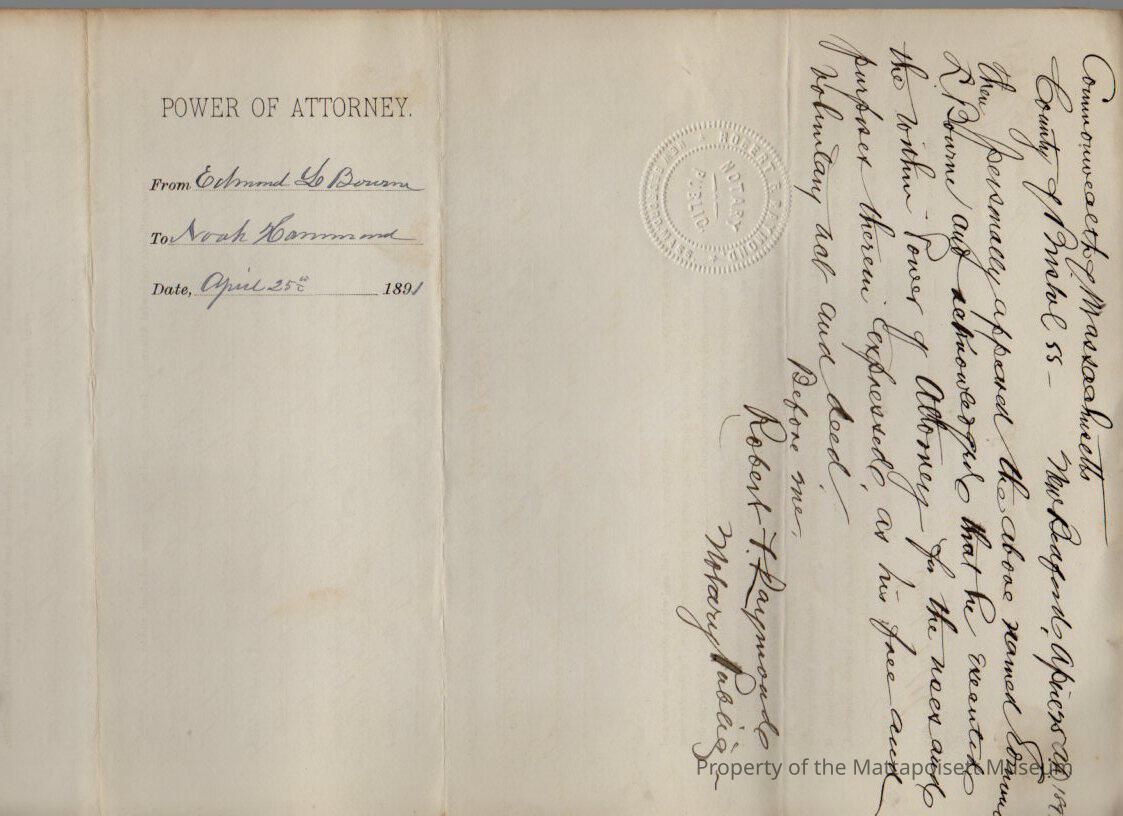 POWER OF ATTORNEY.
From Edmond L Bourne
To Noah Hammond
Date, April 25th 1891
ROBERT F. RAYMOND
NEW BEDFORD, MASS.
NOTARY
PUBLIC.
Commonwealth of Massachusetts
County of Bristol ss - New Bedford, April 189
Then personally appeared the above named Edmund
L Bourne and acknowledged that he executed
the within Power of Attorney for the uses and
purposes therein expressed, as his free and
voluntary act and deed.
Before me,
Robert F. Raymond
Notary Public
Property of the Mattapoisett Museum